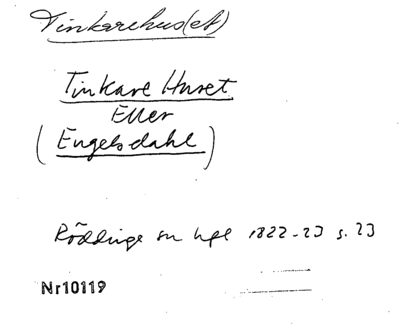 Tinkarehus(et)
Tinkare Huset
Eller
(Engelsdahl)
Röddinge sn hfl 1822-23 s. 23
Nr 10119